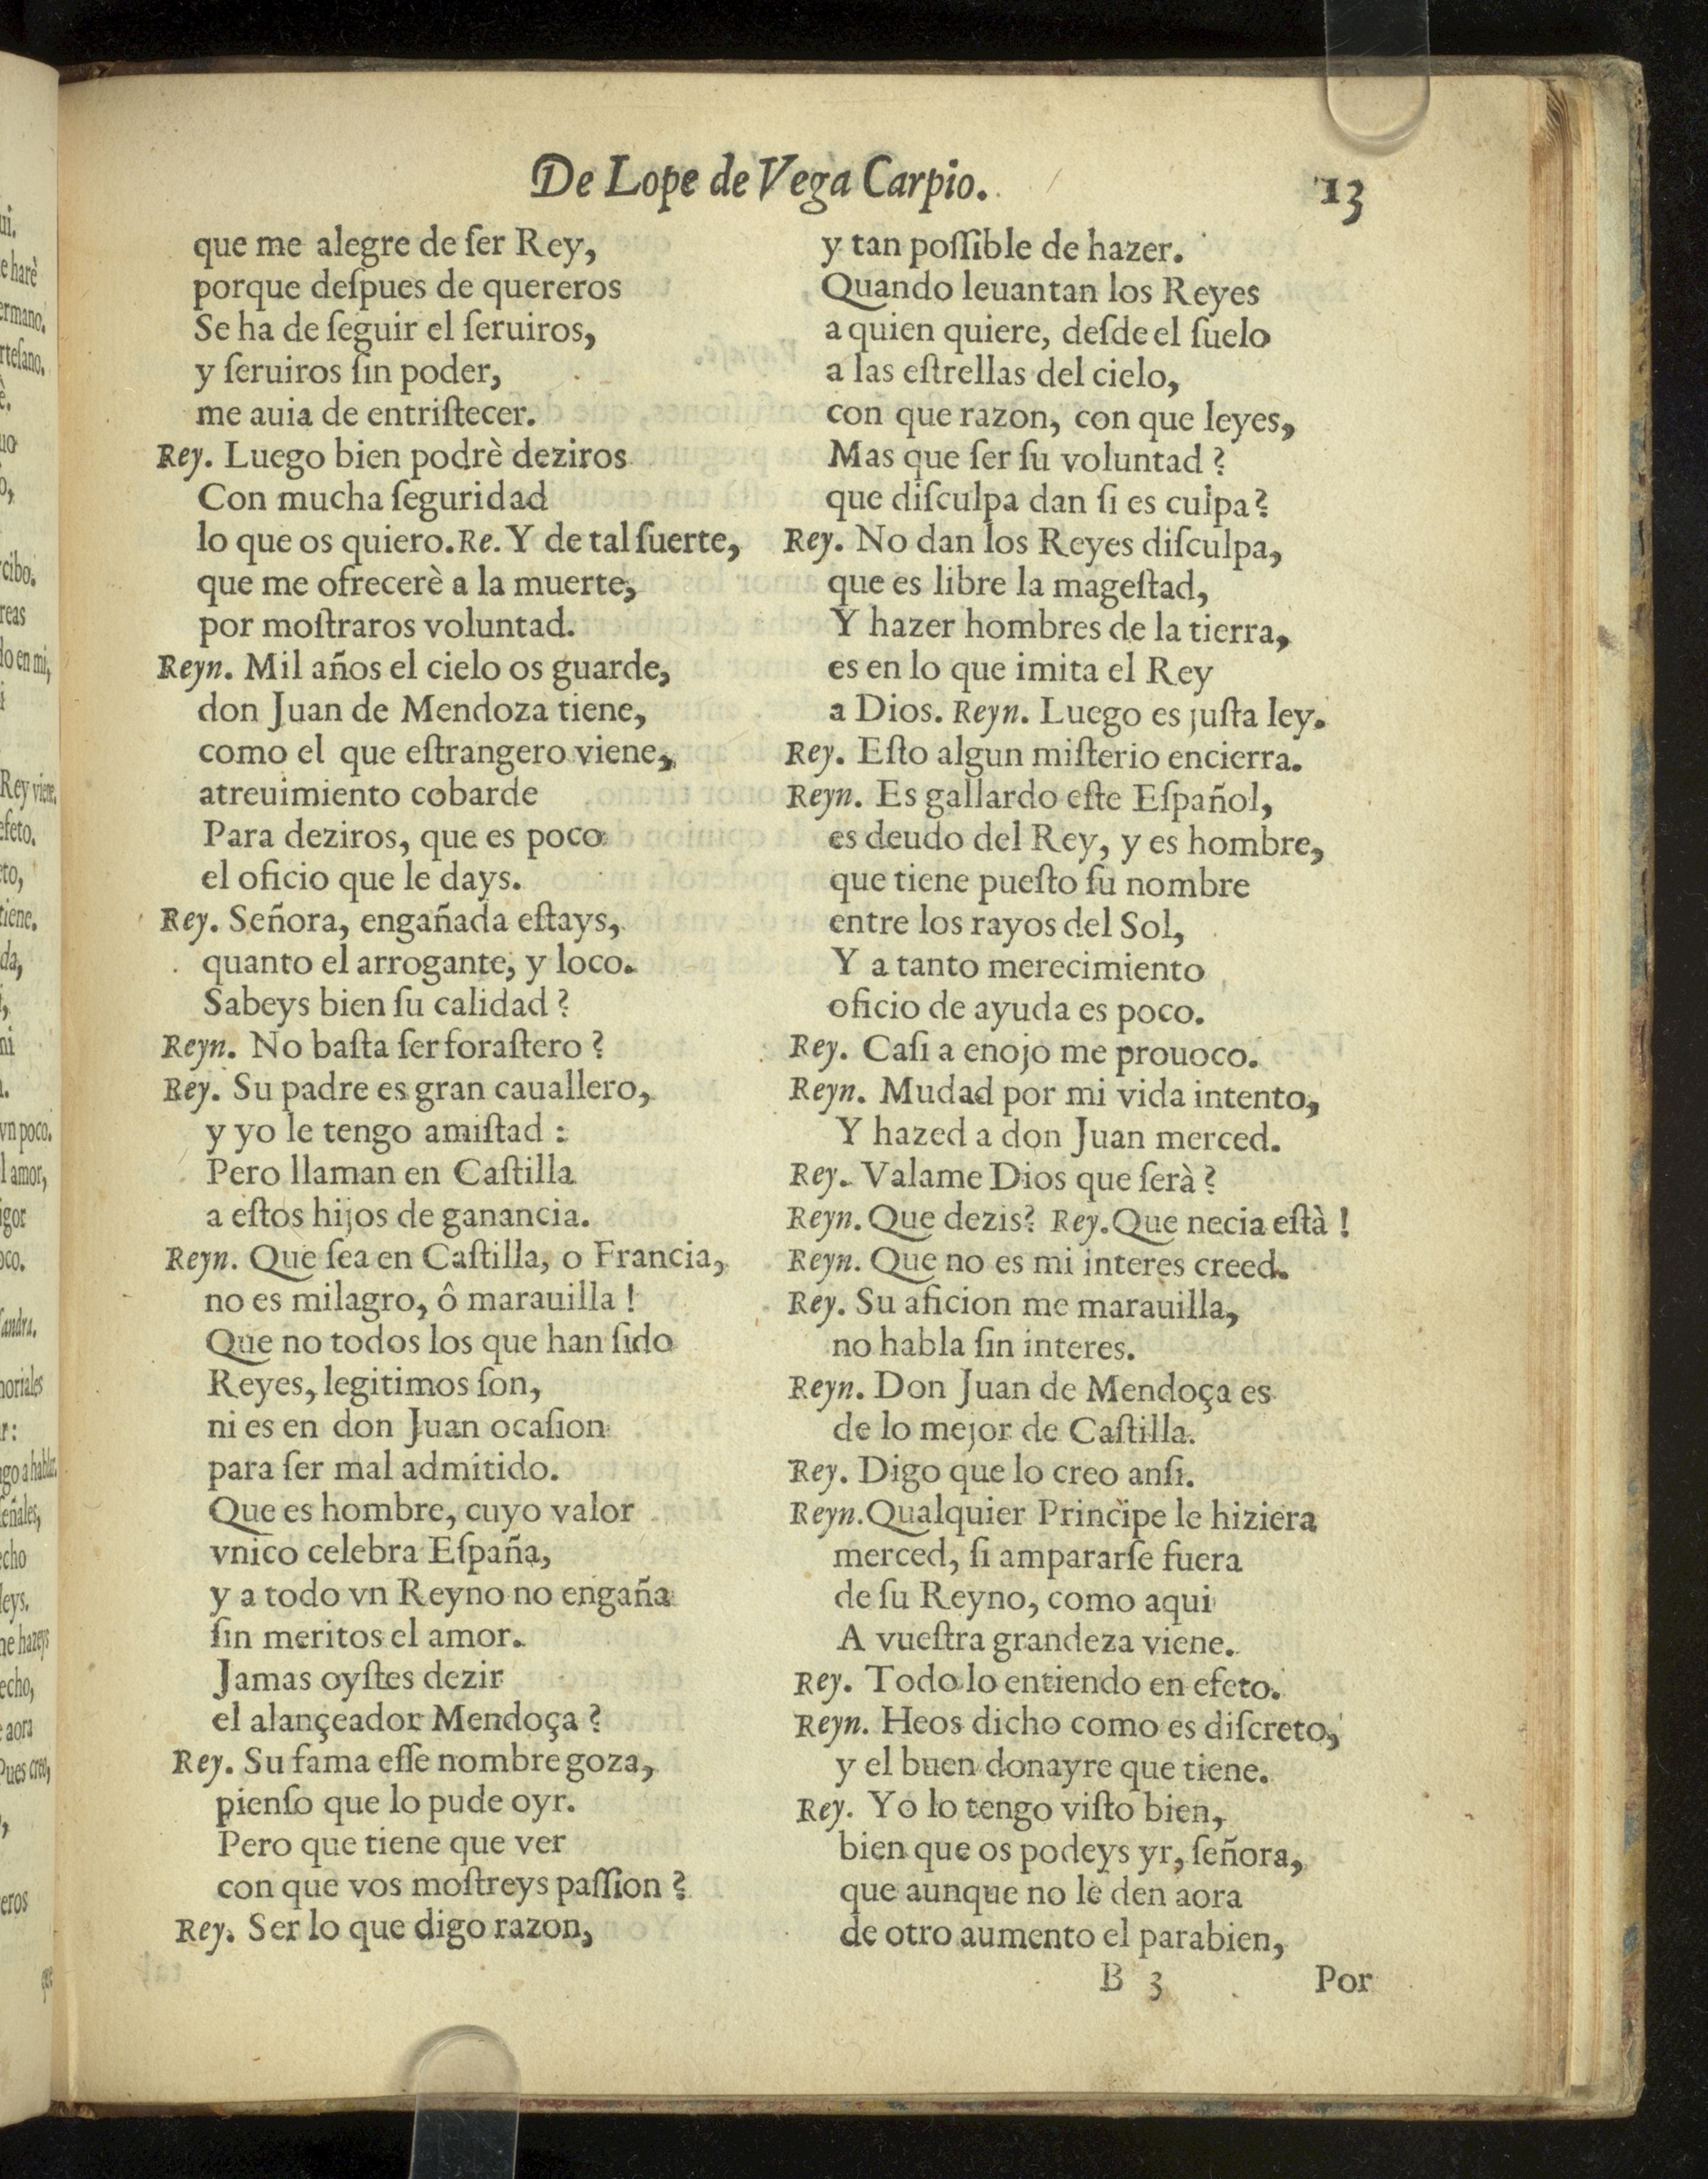 De Lope de Vega Carpio.
13
que me alegre de ſer Rey,
porque deſpues de quereros
Se ha de ſeguir el ſeruiros,
y ſeruiros ſin poder,
me auia de entriſtecer.
Rey. Luego bien podrè deziros
Con mucha ſeguridad
lo que os quiero. Re. Y de tal ſuerte,
que me ofrecerè a la muerte,
por moſtraros voluntad.
Reyn. Mil años el cielo os guarde,
don Juan de Mendoza tiene,
como el que eſtrangero viene,
atreuimiento cobarde
Para deziros, que es poco
el oficio que le days.
Rey. Señora, engañada eſtays,
quanto el arrogante, y loco.
Sabeys bien ſu calidad?
Reyn. No baſta ſer foraſtero?
Rey. Su padre es gran cauallero,
y yo le tengo amiſtad:
Pero llaman en Caſtilla
a eſtos hijos de ganancia.
Reyn. Que ſea en Caſtilla, o Francia,
no es milagro, ô marauilla!
Que no todos los que han ſido
Reyes, legitimos ſon,
ni es en don Juan ocaſion
para ſer mal admitido.
Que es hombre, cuyo valor
vnico celebra Eſpaña,
y a todo vn Reyno no engaña
ſin meritos el amor.
Jamas oyſtes dezir
el alançeador Mendoça?
Rey. Su fama eſſe nombre goza,
pienſo que lo pude oyr.
Pero que tiene que ver
con que vos moſtreys paſſion?
Rey. Ser lo que digo razon,
y tan poſſible de hazer.
Quando leuantan los Reyes
a quien quiere, deſde el ſuelo
a las eſtrellas del cielo,
con que razon, con que leyes,
Mas que ſer ſu voluntad?
que diſculpa dan ſi es culpa?
Rey. No dan los Reyes diſculpa,
que es libre la mageſtad,
Y hazer hombres de la tierra,
es en lo que imita el Rey
a Dios. Reyn. Luego es juſta ley.
Rey. Eſto algun miſterio encierra.
Reyn. Es gallardo eſte Eſpañol,
es deudo del Rey, y es hombre,
que tiene pueſto ſu nombre
entre los rayos del Sol,
Y a tanto merecimiento
oficio de ayuda es poco.
Rey. Caſi a enojo me prouoco.
Reyn. Mudad por mi vida intento,
Y hazed a don Juan merced.
Rey. Valame Dios que ſerà?
Reyn. Que dezis? Rey. Que necia eſtà!
Reyn. Que no es mi interes creed.
Rey. Su aficion me marauilla,
no habla ſin interes.
Reyn. Don Juan de Mendoça es
de lo mejor de Caſtilla.
Rey. Digo que lo creo anſi.
Reyn. Qualquier Principe le hiziera
merced, ſi ampararſe fuera
de ſu Reyno, como aqui
A vueſtra grandeza viene.
Rey. Todo lo entiendo en efeto.
Reyn. Heos dicho como es diſcreto,
y el buen donayre que tiene.
Rey. Yo lo tengo viſto bien,
bien que os podeys yr, ſeñora,
que aunque no le den aora
de otro aumento el parabien,
B 3
Por